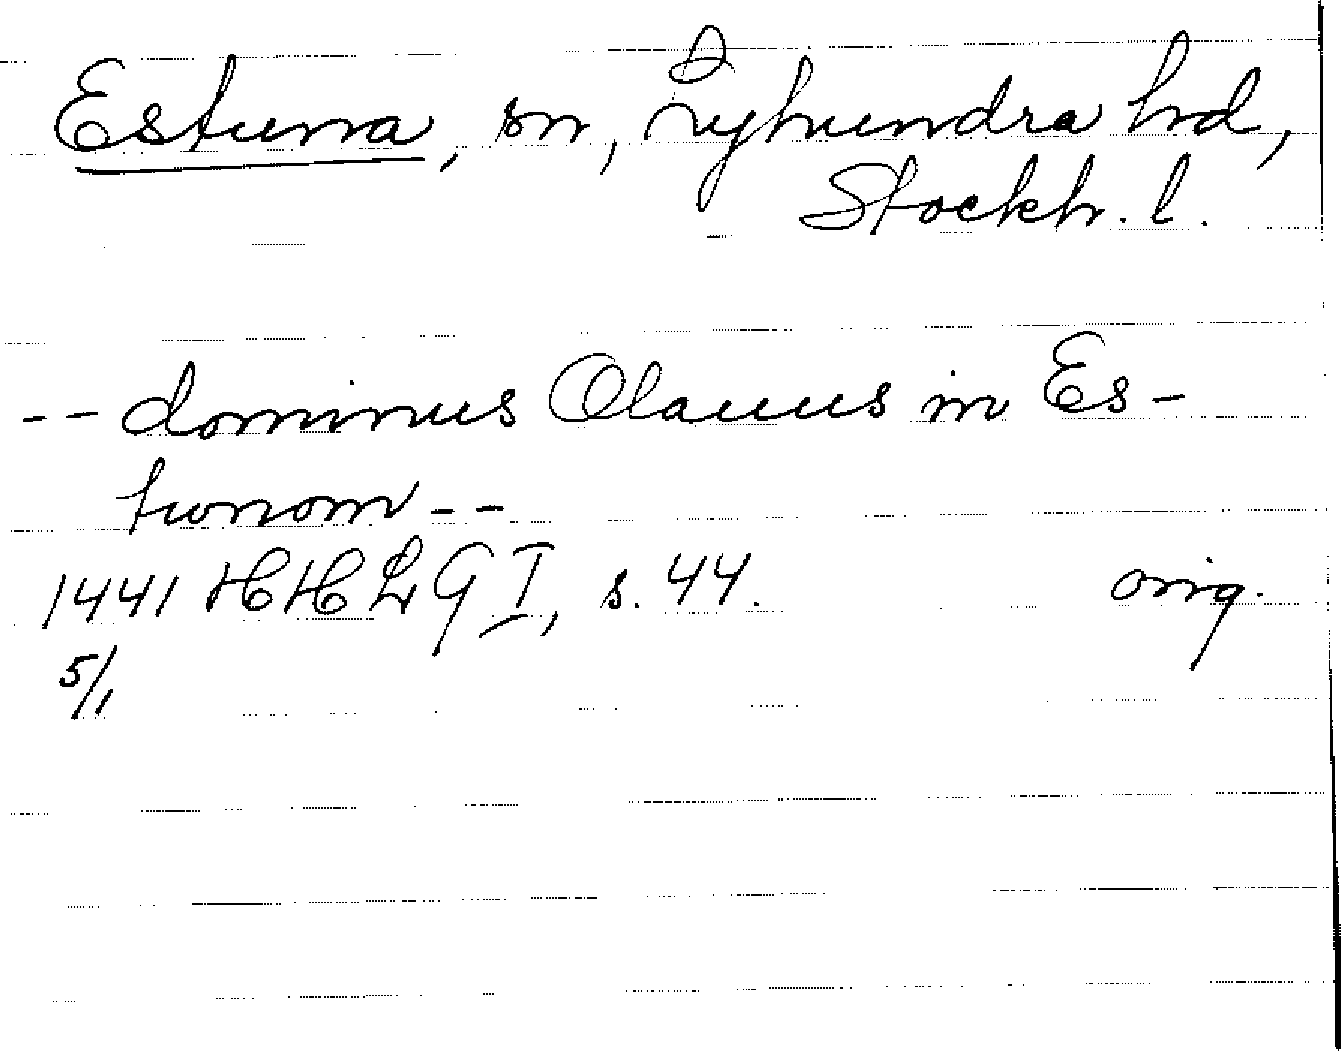 Estuna, sn, Lyhundra hd,
Stockh. l.
-- dominus Olauus in Es-
tunom --
1441 HHLG I, s. 44. orig.
5/1